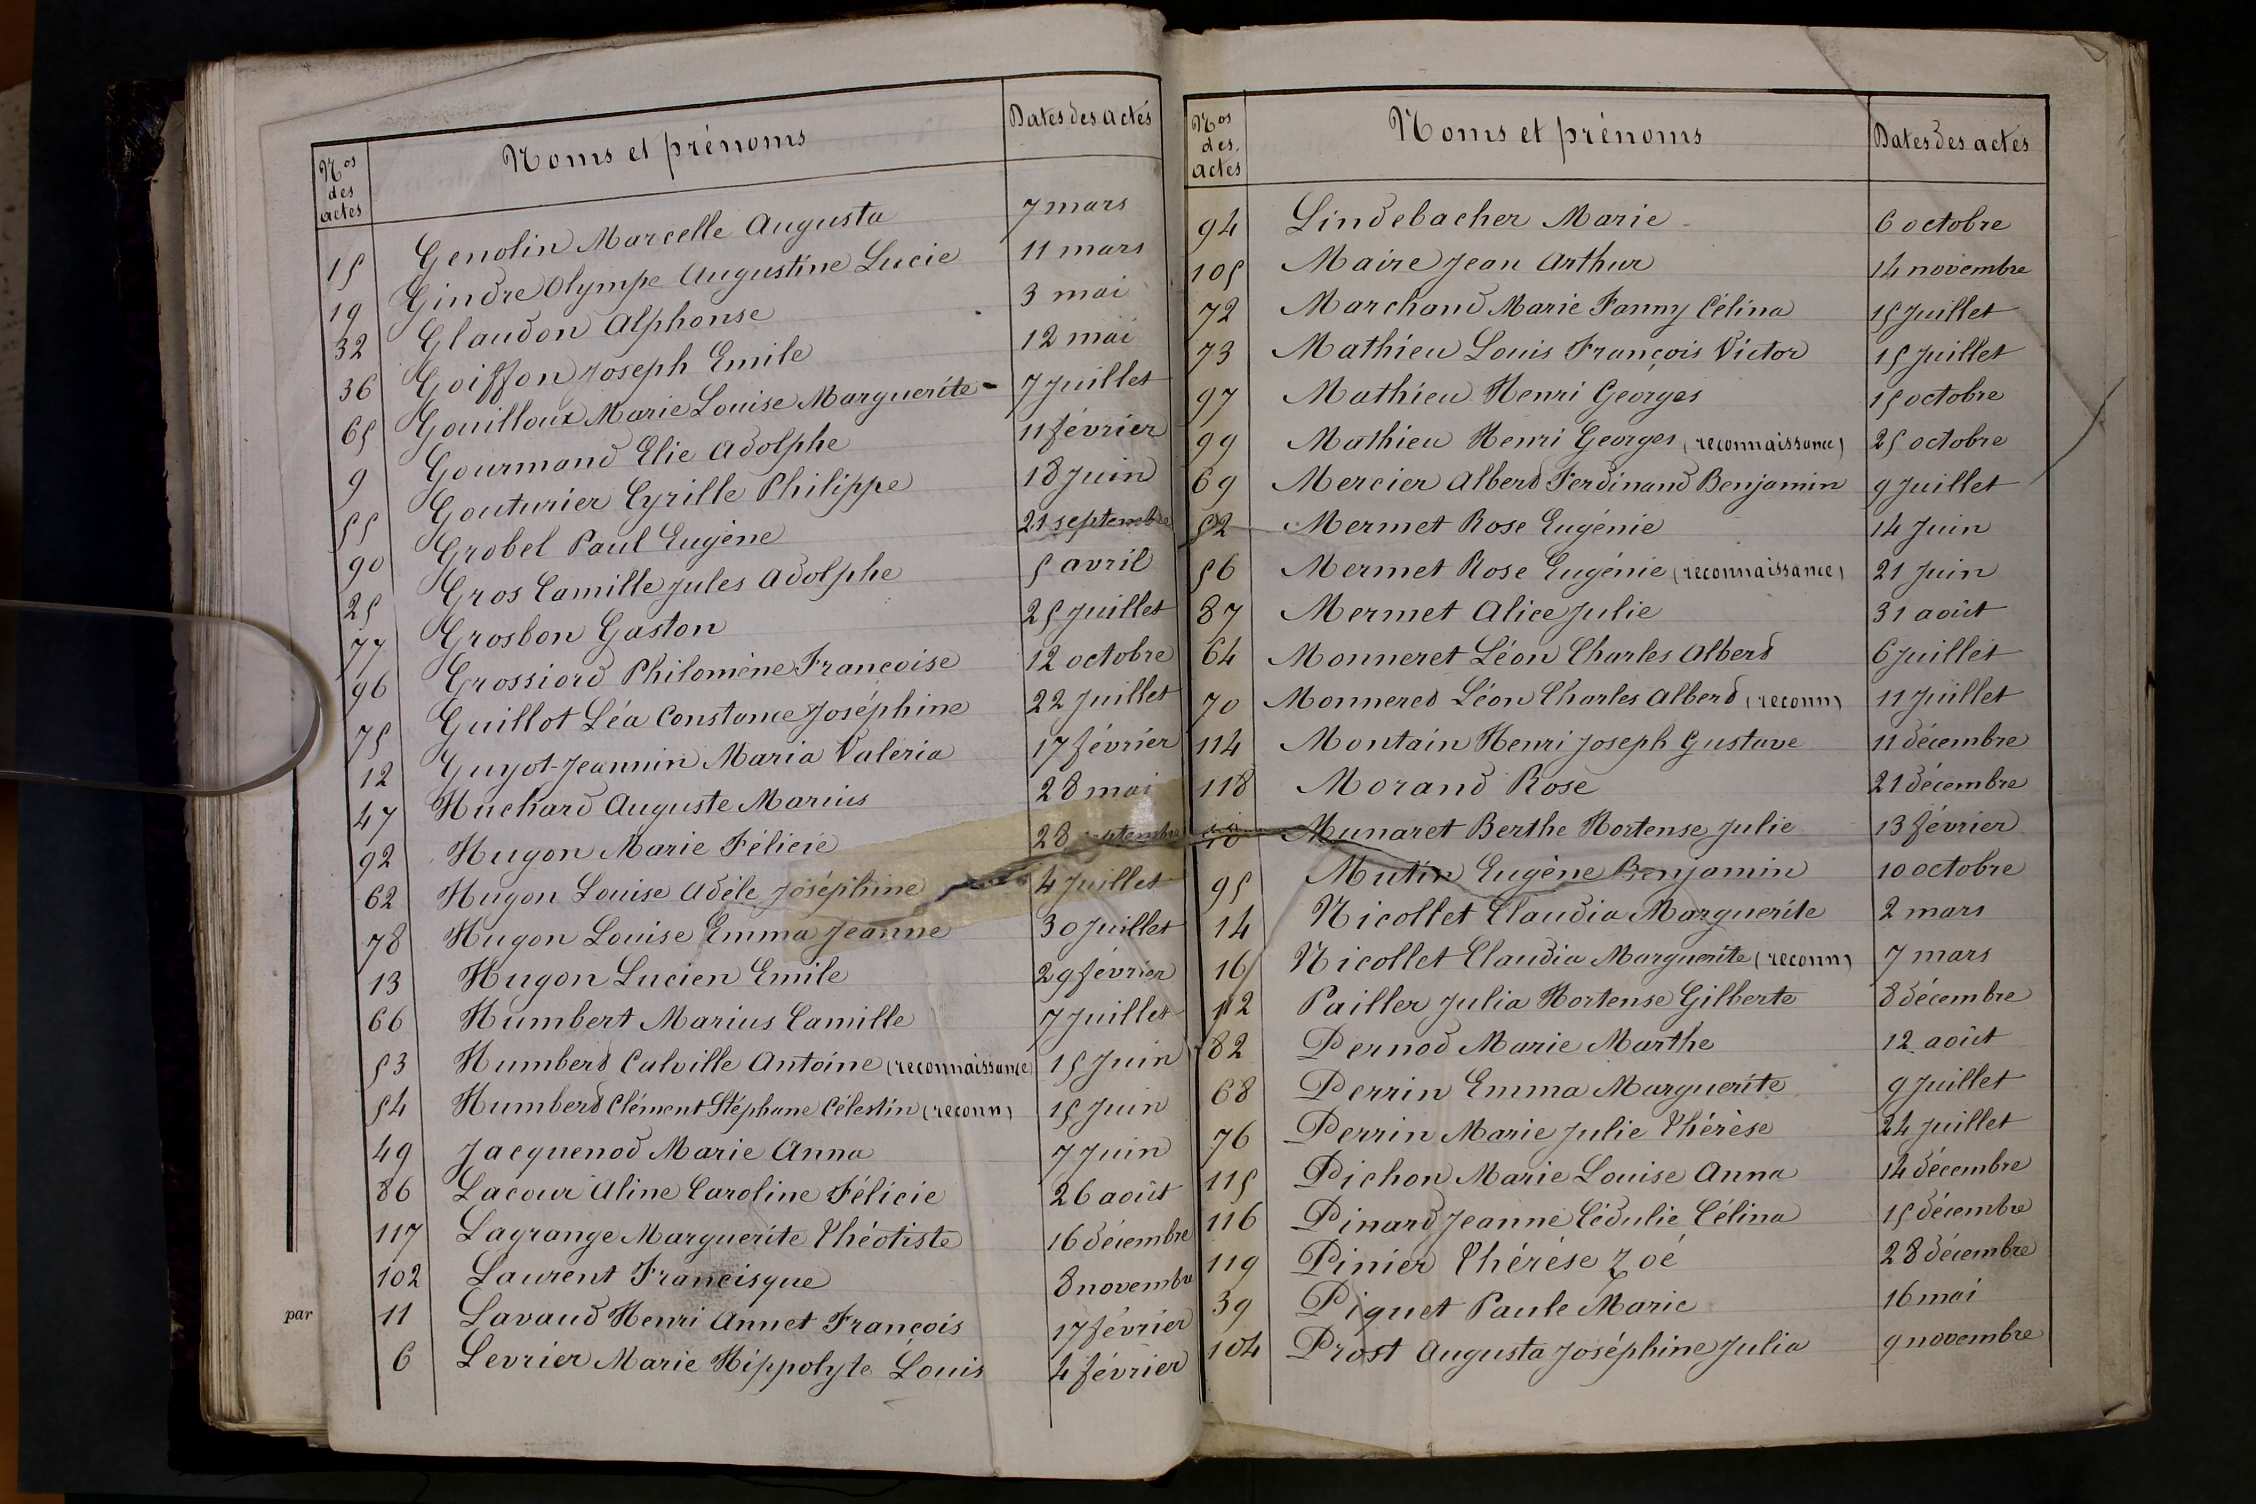 Nos des actes Noms et prénoms Dates des actes
15 Genolin Marcelle Augusta 7 mars
19 Gindre Olympe Augustine Lucie 11 mars
32 Glaudon Alphonse 3 mai
36 Goiffon Joseph Emile 12 mai
65 Gouilloux Marie Louise Marguerite 7 Juillet
9 Gourmand Elie Adolphe 11 février
55 Gouturier Cyrille Philippe 18 Juin
90 Grobel Paul Eugène 21 septembre
25 Gros Camille Jules Adolphe 5 avril
77 Grosbon Gaston 25 Juillet
96 Grossiord Philomène Françoise 12 octobre
75 Guillot Léa Constance Joséphine 22 Juillet
12 Guyot-Jeannin Maria Valéria 17 février
47 Huchard Auguste Marius 28 mai
92 Hugon Marie Félicie 28 septembre
62 Hugon Louise Adèle Joséphine 4 Juillet
78 Hugon Louise Emma Jeanne 30 Juillet
13 Hugon Lucien Emile 29 février
66 Humbert Marius Camille 7 Juillet
53 Humbert Calville Antoine (reconnaissance) 15 Juin
54 Humbert Clément Stéphane Célestin (reconn) 15 Juin
49 Jacquenod Marie Anna 7 Juin
86 Lacour Aline Caroline Félicie 26 août
117 Lagrange Marguerite Théotiste 16 décembre
102 Laurent Francisque 8 novembre
11 Lavaud Henri Annet François 17 février
6 Levrier Marie Hippolyte Louis 4 février
par
Nos des actes Noms et prénoms Dates des actes
94 Lindebacher Marie 6 octobre
105 Maire Jean Arthur 14 novembre
72 Marchand Marie Fanny Célina 15 Juillet
73 Mathieu Louis François Victor 15 Juillet
97 Mathieu Henri Georges 15 octobre
99 Mathieu Henri Georges (reconnaissance) 25 octobre
69 Mercier Albert Ferdinand Benjamin 9 Juillet
52 Mermet Rose Eugénie 14 Juin
56 Mermet Rose Eugénie (reconnaissance) 21 Juin
87 Mermet Alice Julie 31 août
64 Monneret Léon Charles Albert 6 Juillet
70 Monneret Léon Charles Albert (reconn) 11 Juillet
114 Montain Henri Joseph Gustave 11 décembre
118 Morand Rose 21 décembre
10 Munaret Berthe Hortense Julie 13 février
95 Mutin Eugène Benjamin 10 octobre
14 Nicollet Claudia Marguerite 2 mars
16 Nicollet Claudia Marguerite (reconn) 7 mars
112 Pailler Julia Hortense Gilberte 8 décembre
82 Pernod Marie Marthe 12 août
68 Perrin Emma Marguerite 9 Juillet
76 Perrin Marie Julie Thérèse 24 Juillet
115 Pichon Marie Louise Anna 14 décembre
116 Pinard Jeanne Cédulie Célina 15 décembre
119 Pinier Thérèse Zoé 28 décembre
39 Piquet Paule Marie 16 mai
104 Prost Augusta Joséphine Julia 9 novembre